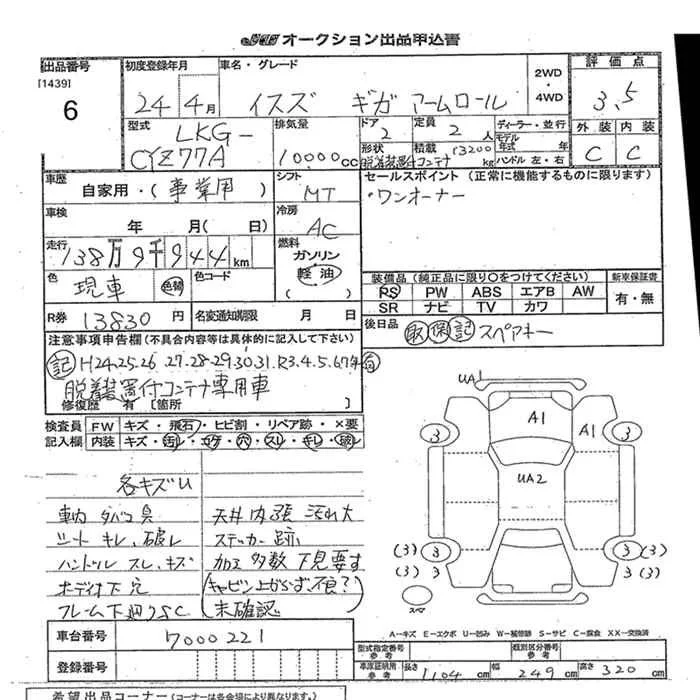 オークション出品申込書
出品番号
[1439]
6
初度登録年月
24年 4月
車名・グレード
イスズ ギガ アームロール
2WD
・
4WD
評価点
3.5
外装 内装
C C
型式
LKG-
CYZ77A
排気量
10000cc
ドア
2
形状
脱着装置付コンテナ
定員
2人
積載
13200kg
ディーラー・並行
モデル
年式 年
ハンドル 左・右
車歴
自家用・(事業用)
シフト
MT
セールスポイント (正常に機能するものに限ります)
・ワンオーナー
車検
年 月( 日)
冷房
AC
走行
138万9千944km
燃料
ガソリン
軽油
( )
色
現車
色替
色コード
装備品 (純正品に限り○をつけてください)
PS PW ABS エアB AW
SR ナビ TV カワ
新車保証書
有・無
R券 13830円
名変通知期限 月 日
後日品
取 保 記 スペアキー
注意事項申告欄 (不具合内容等は具体的に記入して下さい)
記 H24.25.26.27.28.29.30.31.R3.4.5.6.7年
脱着装置付コンテナ専用車
修復歴 有 [箇所 ]
検査員
記入欄
FW キズ・飛石・ヒビ割・リペア跡・×要
内装 キズ・汚レ・コゲ・穴・スレ・キレ・破レ
各キズU
車内 タバコ臭
シート キレ、破レ
ハンドル スレ、キズ
ボディ下 穴
フレーム下廻りSC
天井 内張 汚れ大
ステッカー 跡
加工 多数 下見要す
(キャビン上がらず、不良?)
未確認
UA1
A1
A1
3
3
UA2
(3) 3
3 (3)
(3) 3
3 (3)
スペア
A―キズ E―エクボ U―凹み W―補修跡 S―サビ C―腐食 XX―交換済
車台番号 7000221
登録番号
型式指定番号
参考
類別区分番号
参考
車庫証明用
参考
長さ 1104cm 幅 249cm 高さ 320cm
希望出品コーナー(コーナーは各会場により異なります。)